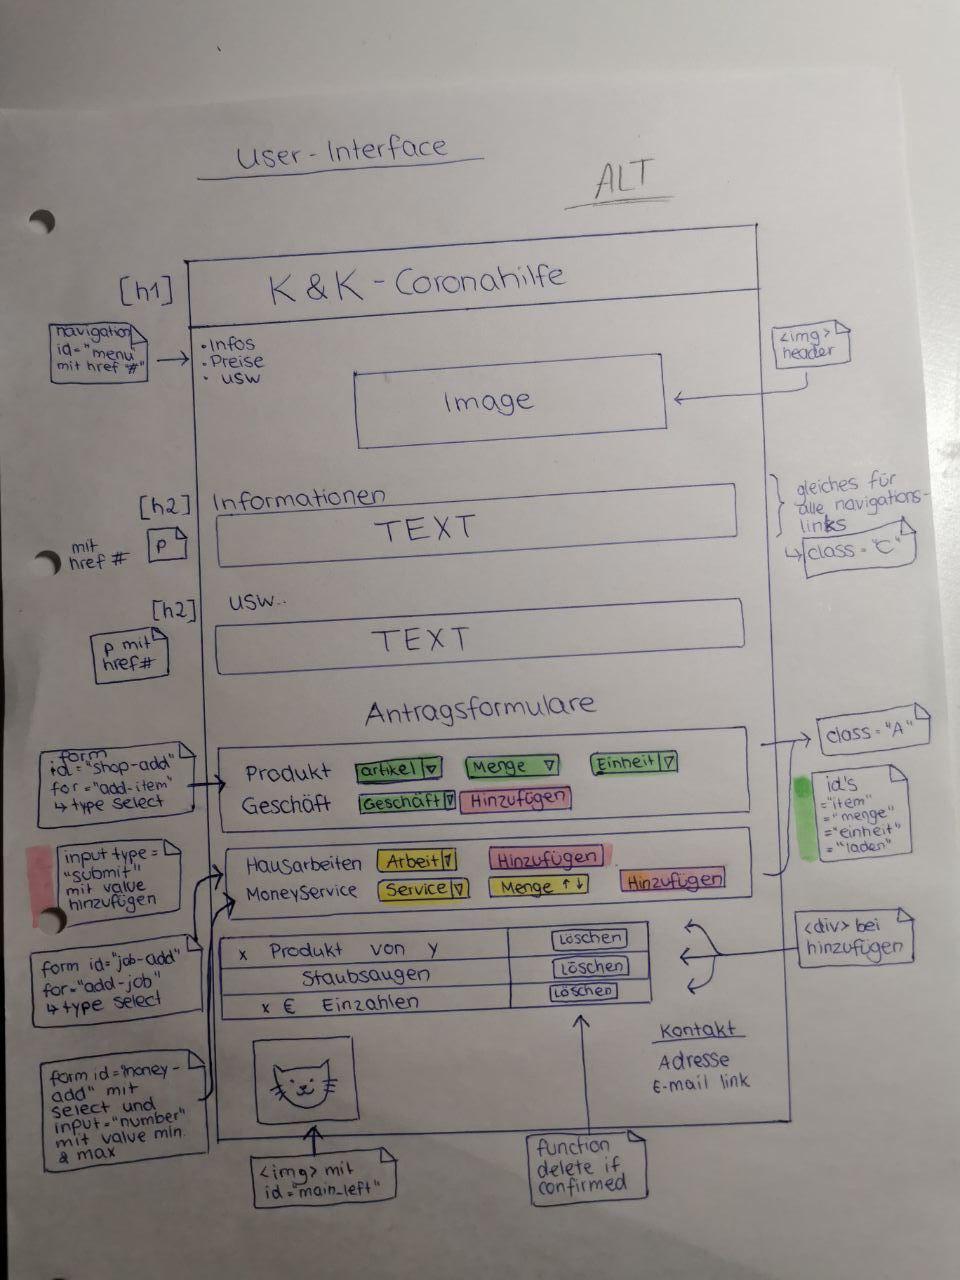 User-Interface
ALT
[h1]
K & K - Coronahilfe
navigation
id="menu"
mit href "#"
• Infos
• Preise
• usw
Image
<img>
header
[h2]
Informationen
TEXT
mit
href #
p
gleiches für
alle navigations-
links
↳ class = "C"
[h2]
usw..
TEXT
p mit
href#
Antragsformulare
form
id="shop-add"
for="add-item"
↳ type select
Produkt artikel Menge Einheit
Geschäft Geschäft Hinzufügen
class="A"
id's
="item"
="menge"
="einheit"
="laden"
input type=
"submit"
mit value
hinzufügen
Hausarbeiten Arbeit Hinzufügen
MoneyService Service Menge ↑↓ Hinzufügen
form id="job-add"
for="add-job
↳ type select
x Produkt von y Löschen
Staubsaugen Löschen
x € Einzahlen Löschen
<div> bei
hinzufügen
form id="money-
add" mit
select und
input="number"
mit value min.
& max
Kontakt
Adresse
E-mail link
<img> mit
id="main_left"
function
delete if
confirmed